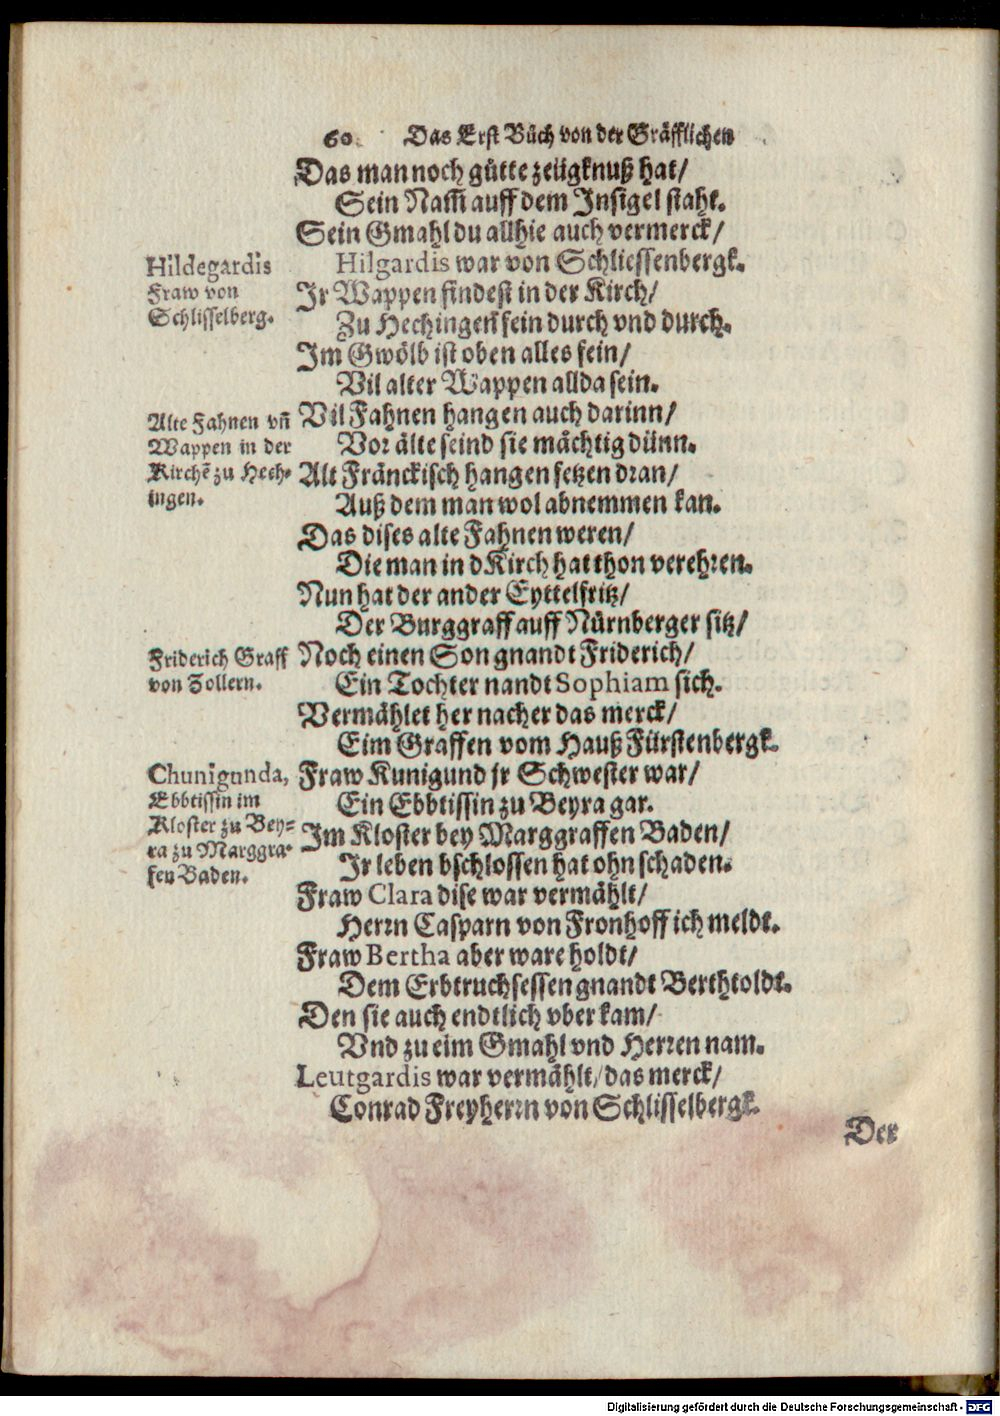 60. Das Erst Bůch von der Gräfflichen
Das man noch gůtte zeügknuß hat/
Sein Nam̃ auff dem Insigel staht.
Sein Gmahl du allhie auch vermerck/
Hildegardis
Fraw von
Schlisselberg.
Hilgardis war von Schliessenbergk.
Ir Wappen findest in der Kirch/
Zu Hechingen̄ fein durch vnd durch.
Im Gwölb ist oben alles fein/
Vil alter Wappen allda sein.
Alte Fahnen vn̄
Wappen in der
Kirchē zu Hech-
ingen.
Vil Fahnen hangen auch darinn/
Vor älte seind sie mächtig dünn.
Alt Fränckisch hangen fetzen dran/
Auß dem man wol abnemmen kan.
Das dises alte Fahnen weren/
Die man in dKirch hat thon verehren.
Nun hat der ander Eyttelfritz/
Der Burggraff auff Nürnberger sitz/
Friderich Graff
von Zollern.
Noch einen Son gnandt Friderich/
Ein Tochter nandt Sophiam sich.
Vermählet her nacher das merck/
Eim Graffen vom Hauß Fürstenbergk.
Chunigunda,
Ebbtissin im
Kloster zu Bey-
ra zu Marggra-
fen Baden.
Fraw Kunigund jr Schwester war/
Ein Ebbtissin zu Beyra gar.
Im Kloster bey Marggraffen Baden/
Ir leben bschlossen hat ohn schaden.
Fraw Clara dise war vermählt/
Herrn Casparn von Fronhoff ich meldt.
Fraw Bertha aber ware holdt/
Dem Erbtruchsessen gnandt Berthtoldt.
Den sie auch endtlich vber kam/
Vnd zu eim Gmahl vnd Herren nam.
Leutgardis war vermählt/ das merck/
Conrad Freyherrn von Schlisselbergk.
Der
Digitalisierung gefördert durch die Deutsche Forschungsgemeinschaft - DFG